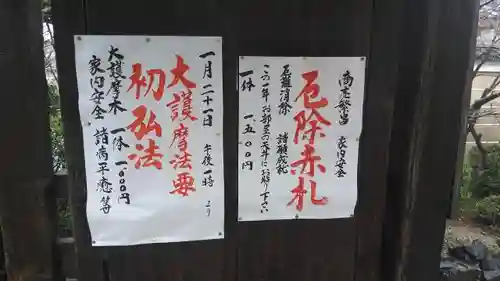 一月二十一日 午後一時より
大護摩法要
初弘法
大護摩木 一体 一、〇〇〇円
家内安全 諸病平癒等
商売繁昌 家内安全
厄除赤札
厄難消除 諸願成就
この一年お部屋の天井にお貼り下さい
一体 一、五〇〇円